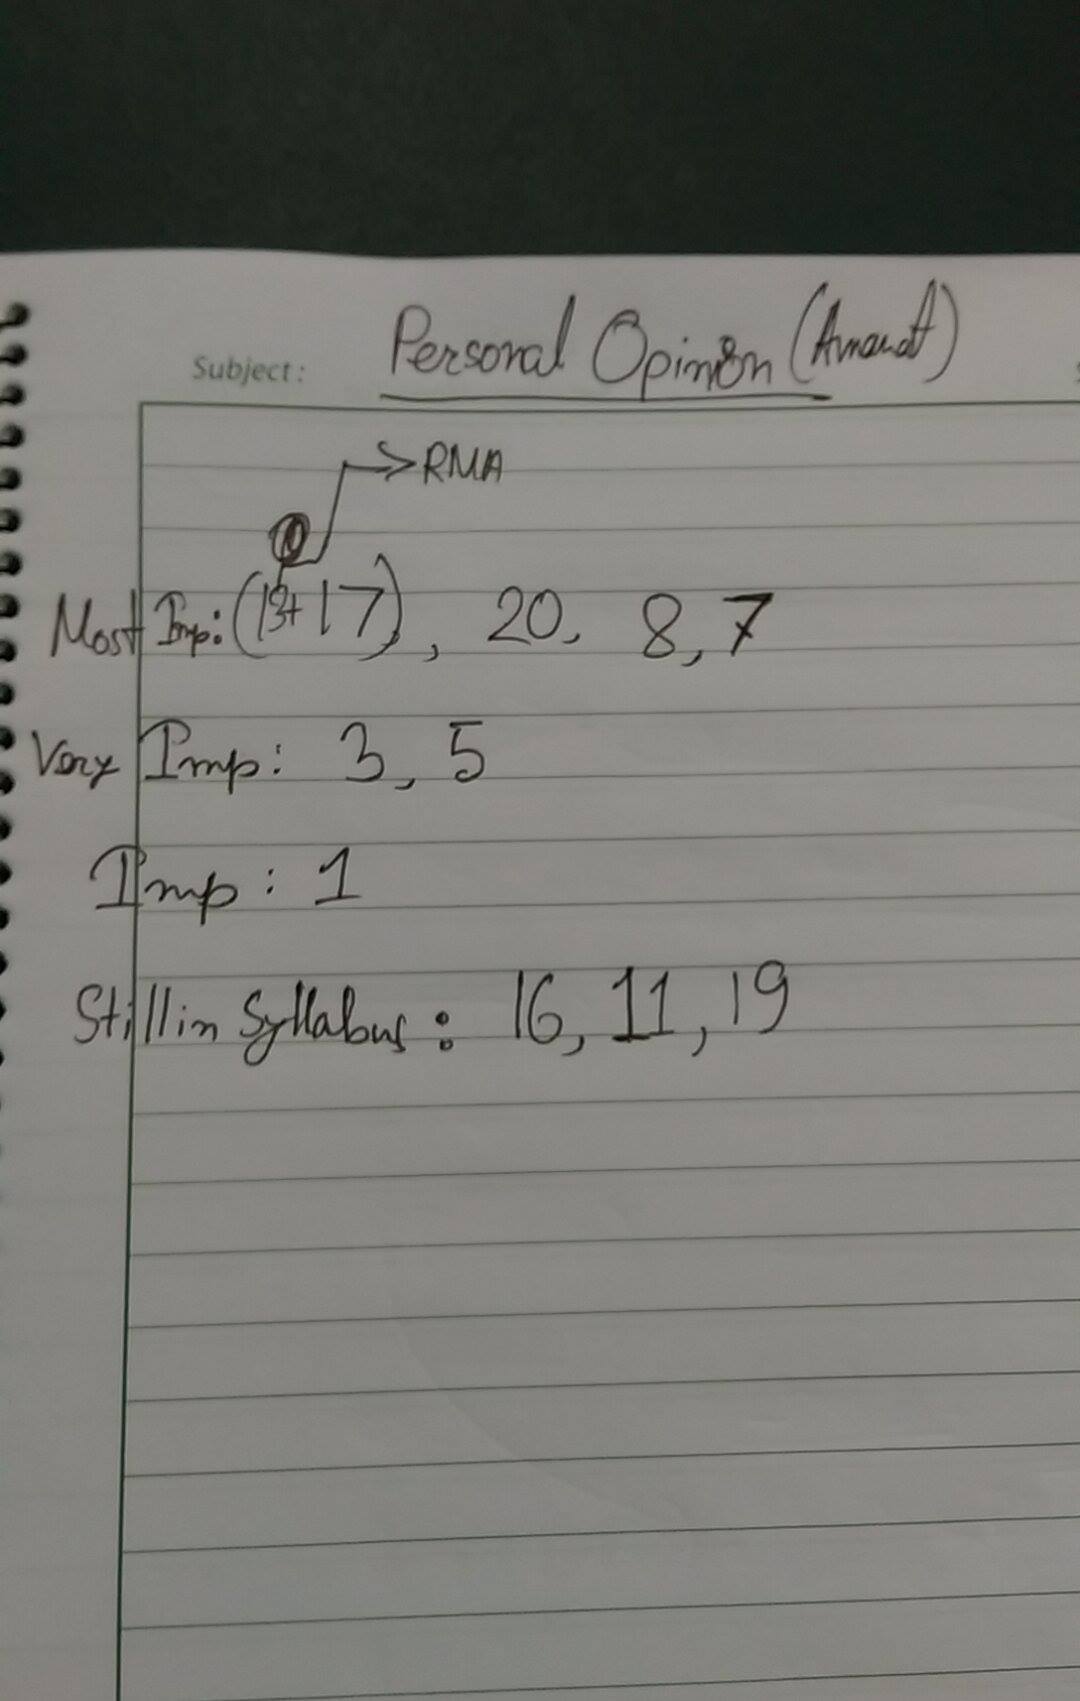 Subject: Personal Opinion (Amanat)
→RMA
Most Imp: (13+17), 20, 8, 7
Very Imp: 3, 5
Imp: 1
Still in Syllabus: 16, 11, 19